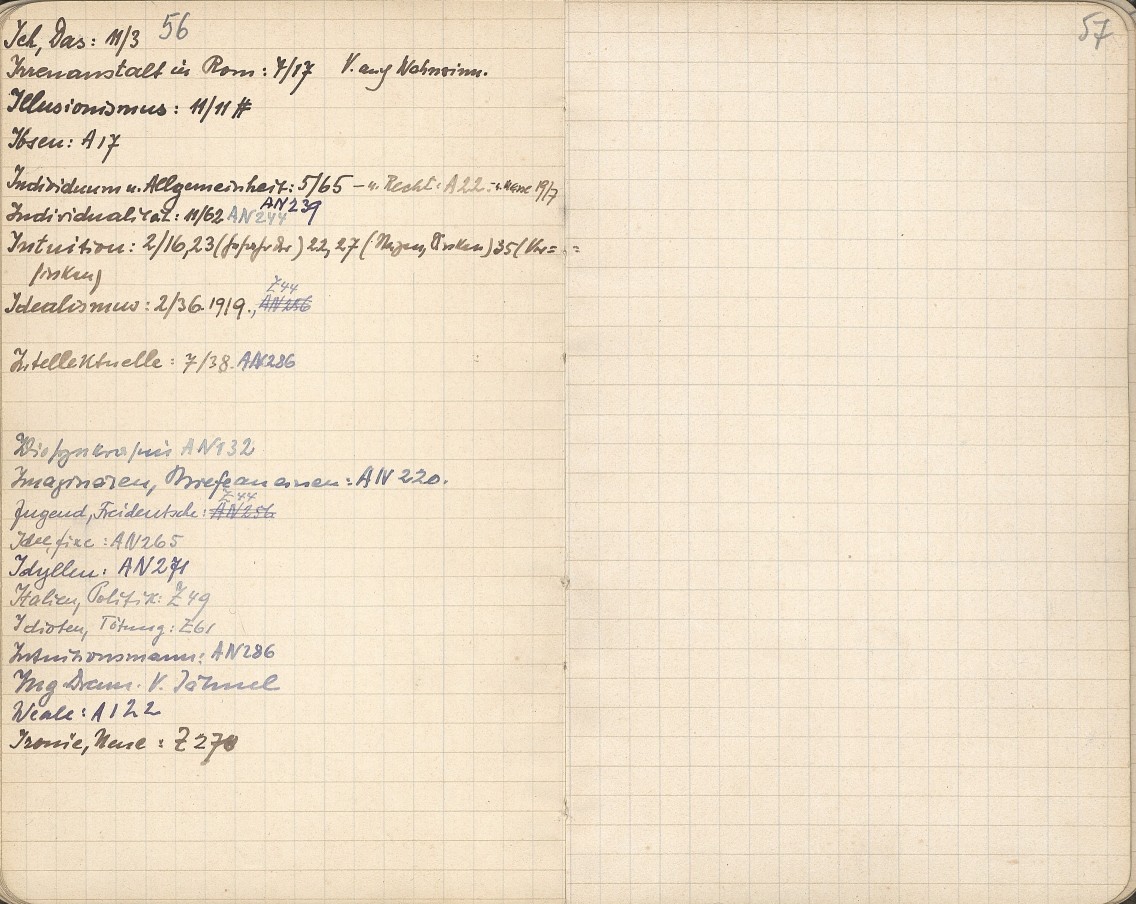 56
Ich, Das: 11/3
Irrenanstalt in Rom: 7/17 V. auch Wahnsinn.
Illusionismus: 11/11 #
Ibsen: A 17
Individuum u. Allgemeinheit: 5/65 – u. Recht: A 22. – u. Masse 19/7
AN 239
Individualität: 11/62 AN 244
Intuition: 2/16, 23 22, 27 35
Z 44
Idealismus: 2/36. 19/9., AN 256
Intellektuelle: 7/38. AN 286
Idiosynkrasie AN 132
Imaginären, Briefe an einen: AN 220.
Z 44
Jugend, Freideutsche: AN 256
Idee, fixe: AN 265
Idyllen: AN 271
Italien, Politik: Z 49
Idioten, Tötung: Z 61
Intuitionsmann: AN 286
Ing-Dram. V.
Ideale: A 122
Ironie, Neue: Z 270
57